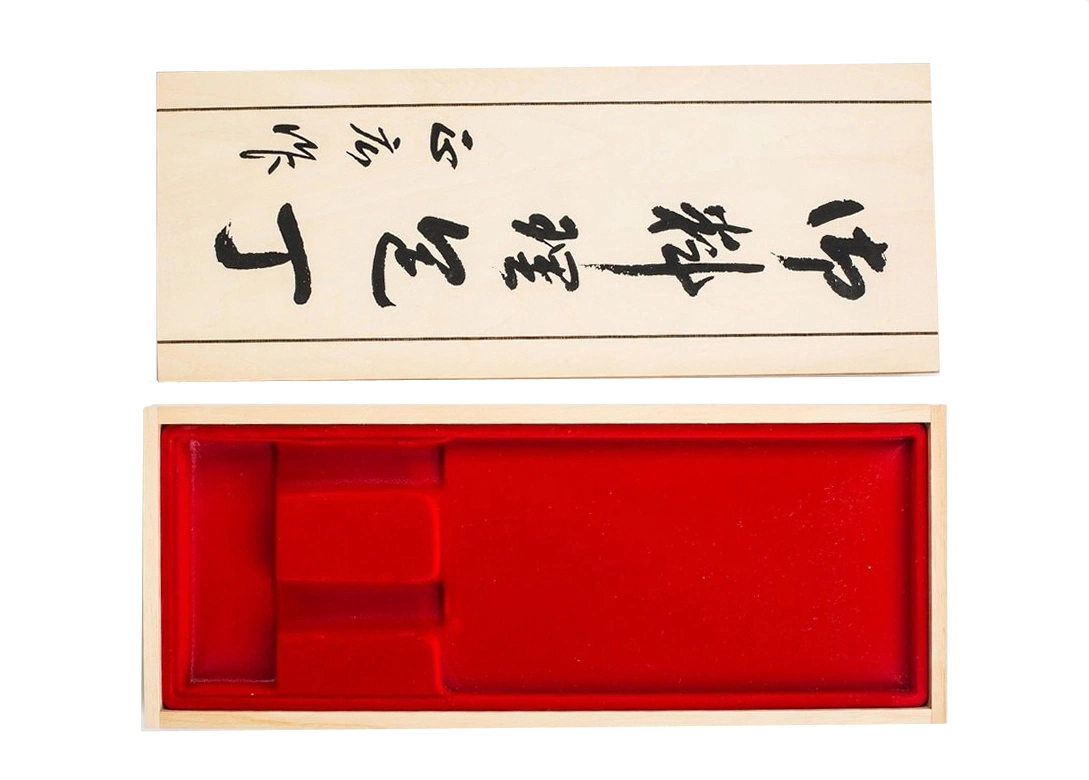 御料理包丁
正広作